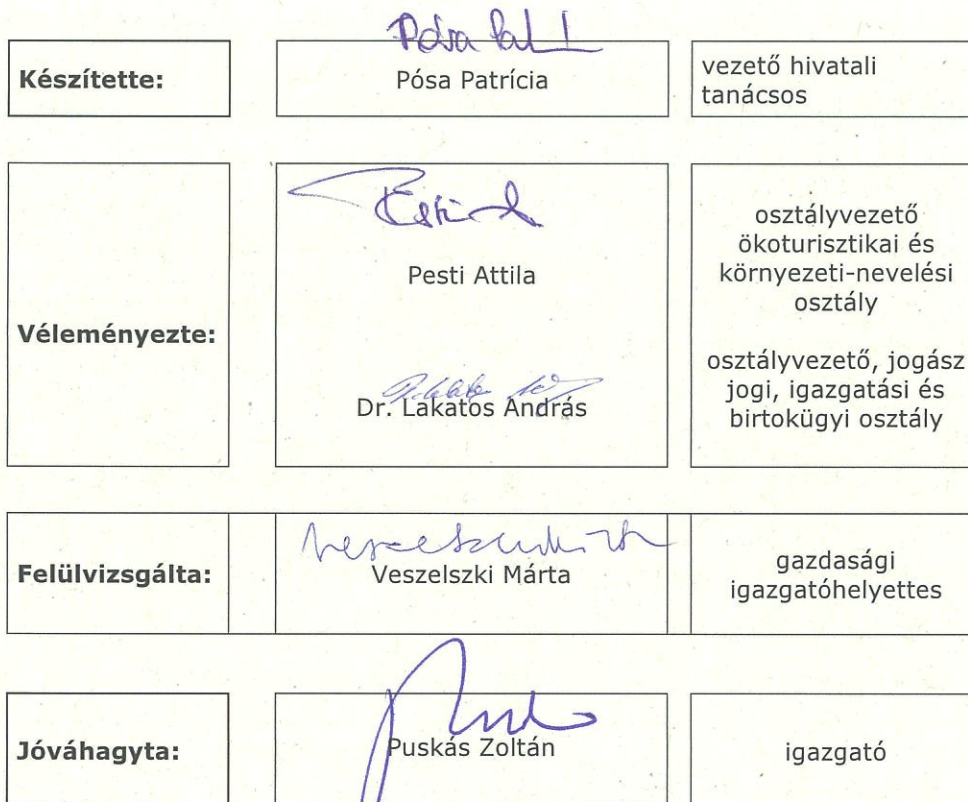 Készítette:
Pósa Patrícia
vezető hivatali
tanácsos
Véleményezte:
Pesti Attila
osztályvezető
ökoturisztikai és
környezeti-nevelési
osztály
Dr. Lakatos András
osztályvezető, jogász
jogi, igazgatási és
birtokügyi osztály
Felülvizsgálta:
Veszelszki Márta
gazdasági
igazgatóhelyettes
Jóváhagyta:
Puskás Zoltán
igazgató